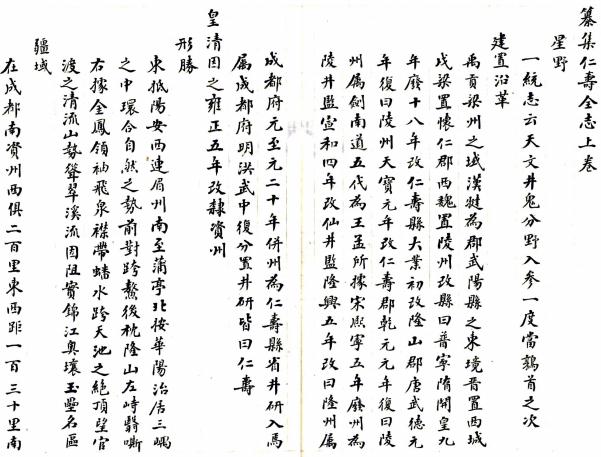 纂集仁壽全志上卷
星野
一統志云天文井鬼分野入參一度當鶉首之次
建置沿革
禹貢梁州之域漢犍為郡武陽縣之東境晋置西城
戍梁置懷仁郡西魏置陵州改縣曰普寧隋開皇九
年廢十八年改仁壽縣大業初改隆山郡唐武德元
年復曰陵州天寶元年改仁壽郡乾元元年復曰陵
州属劍南道五代為王孟所據宋熙寧五年廢州為
陵井監宣和四年改仙井監隆興五年改曰隆州属
成都府元至元二十年併州為仁壽縣省井研入焉
属成都府明洪武中復分置井研皆曰仁壽
皇清因之雍正五年改隸資州
形勝
東抵陽安西連眉州南至蒲亭北接華陽治居三嵎
之中環合自然之勢前對跨鰲後枕隆山左峙翳嘶
右據金鳳領袖飛泉襟帶蟠水跨天池之絕頂望官
渡之清流山勢聳翠溪流因阻實錦江奧壤玉壘名區
疆域
在成都南資州西俱二百里東西距一百三十里南